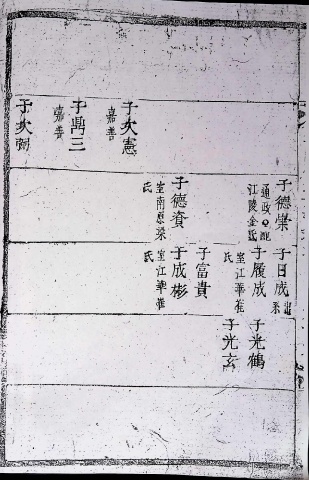 子次憲
嘉善
子鼎三
嘉善
子次弼
子德榮
通政
江陵金氏
子德資
室南原梁
氏
子日成
出系
子履成
室江華崔
氏
子富貴
子成彬
室江華崔
氏
子光鶴
子光玄